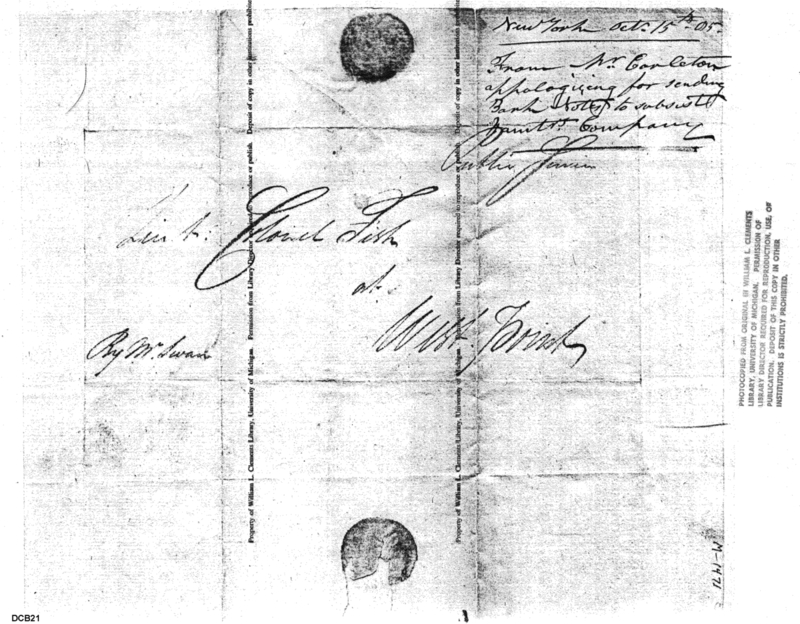 New York Oct. 15th 05.
From Mr. Carleton
appologizing for sending
Bank Notes to subsist
Company
Public
Lieut. Colonel Fish
at
West Point
By Mr. Swan
Property of William L. Clements Library, University of Michigan. Permission from Library Director required to reproduce or publish. Deposit of copy in other institutions prohibited
Property of William L. Clements Library, University of Michigan. Permission from Library Director required to reproduce or publish. Deposit of copy in other institutions
PHOTOCOPIED FROM ORIGINAL IN WILLIAM L. CLEMENTS
LIBRARY, UNIVERSITY OF MICHIGAN. PERMISSION OF
LIBRARY DIRECTOR REQUIRED FOR REPRODUCTION, USE, OF
PUBLICATION. DEPOSIT OF THIS COPY IN OTHER
INSTITUTIONS IS STRICTLY PROHIBITED.
M-1471
DCB21